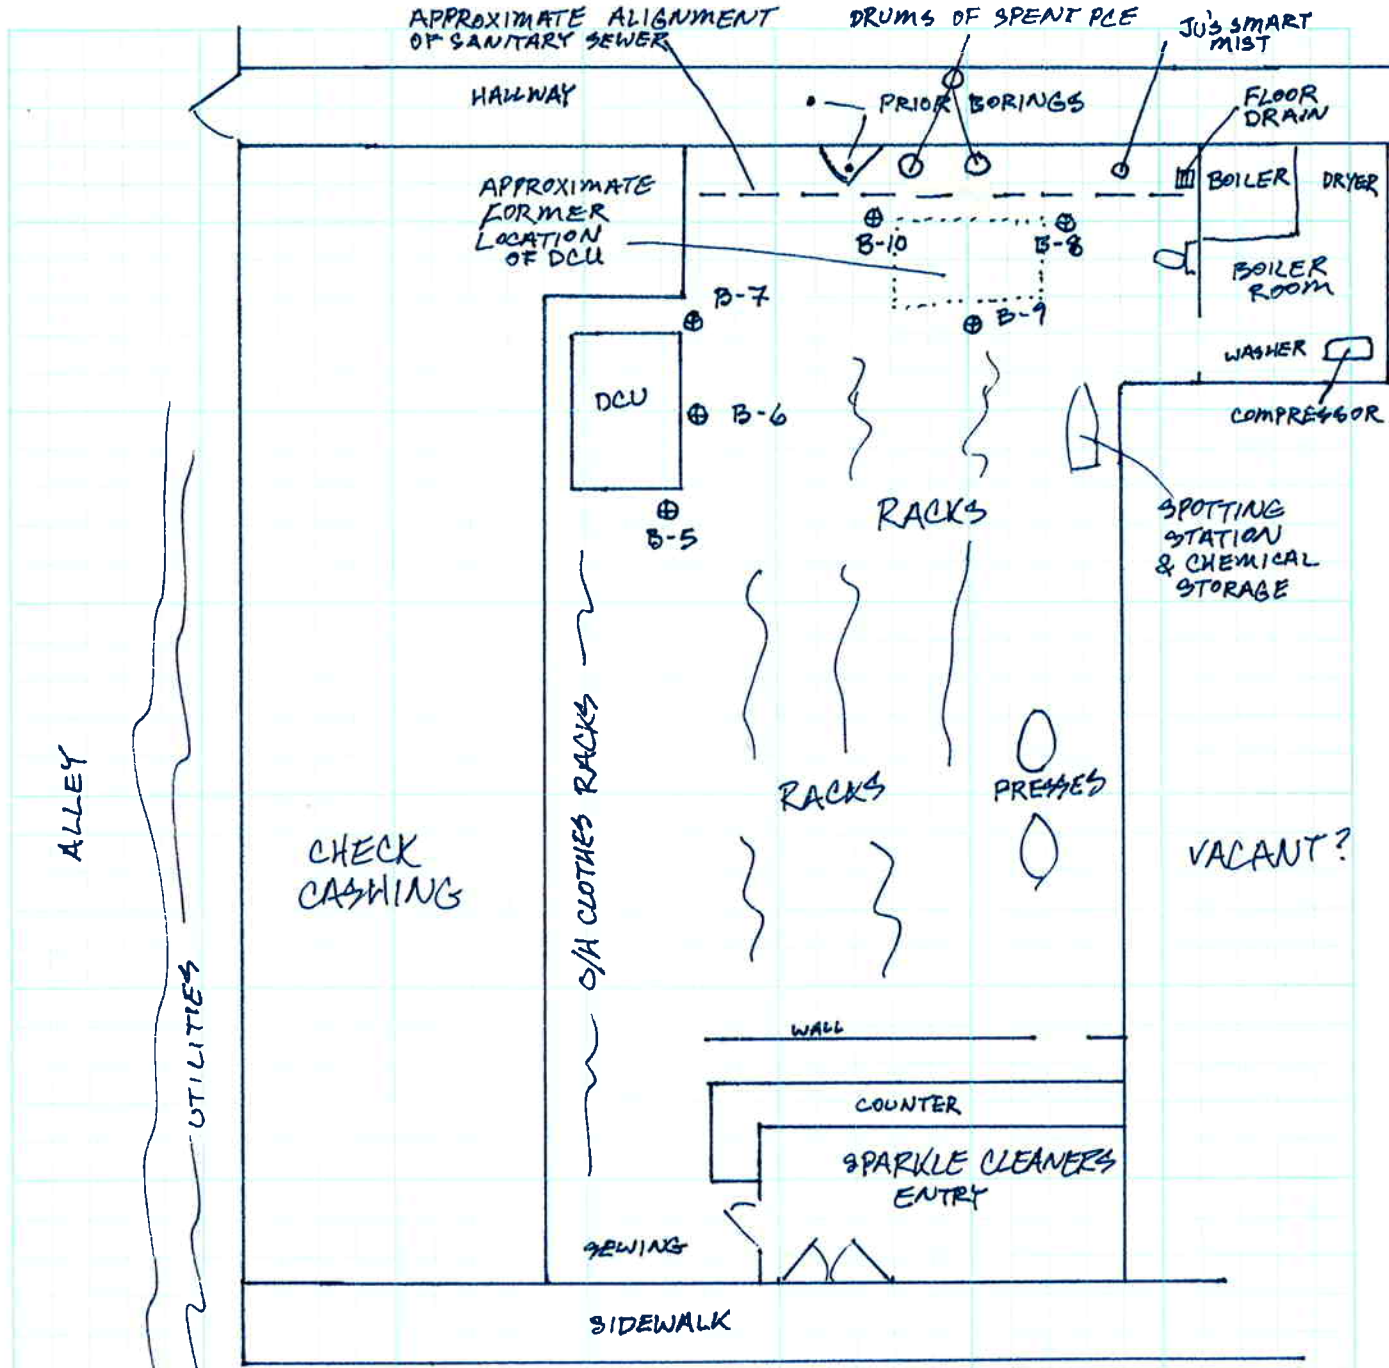 APPROXIMATE ALIGNMENT
OF SANITARY SEWER
DRUMS OF SPENT PCE
JU'S SMART
MIST
HALLWAY
PRIOR BORINGS
FLOOR
DRAIN
APPROXIMATE
FORMER
LOCATION
OF DCU
BOILER
DRYER
B-10
B-8
BOILER
ROOM
B-7
B-9
WASHER
DCU
B-6
COMPRESSOR
RACKS
SPOTTING
STATION
& CHEMICAL
STORAGE
B-5
O/H CLOTHES RACKS
ALLEY
RACKS
PRESSES
CHECK
CASHING
VACANT?
UTILITIES
WALL
COUNTER
SPARKLE CLEANERS
ENTRY
SEWING
SIDEWALK